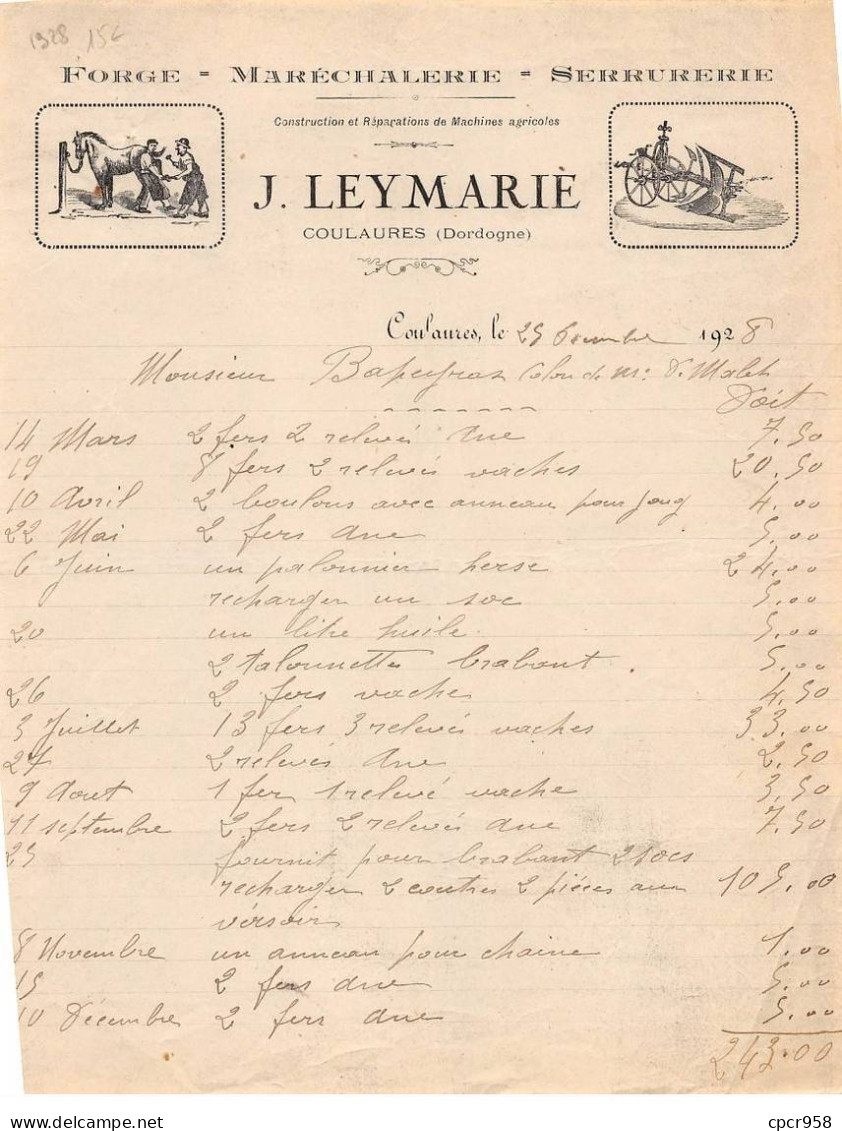 1928 15€
FORGE = MARÉCHALERIE = SERRURERIE
Construction et Réparations de Machines agricoles
J. LEYMARIE
COULAURES (Dordogne)
Coulaures, le 25 Décembre 1928
Monsieur Bapeyras Colon de Mr. D. Malet
Doit
14 Mars 2 fers 2 relevés âne 7.50
19 8 fers 2 relevés vaches 20.50
10 Avril 2 boulons avec anneau pour joug 4.00
22 Mai 2 fers âne 5.00
6 Juin un palonnier herse 24.00
recharger un soc 5.00
20 un litre huile 5.00
2 talonnettes brabant . 5.00
26 2 fers vache 4.50
3 Juillet 13 fers 3 relevés vaches 33.00
27 2 relevés âne 2.50
9 Aout 1 fer 1 relevé vache 3.50
11 septembre 2 fers 2 relevés âne 7.50
25 fournit pour brabant 2 socs
recharger 2 coutres 2 pièces aux 105.00
versoir
8 Novembre un anneau pour chaine 1.00
15 2 fers âne 5.00
10 Décembre 2 fers âne 5.00
243.00
cpcr958